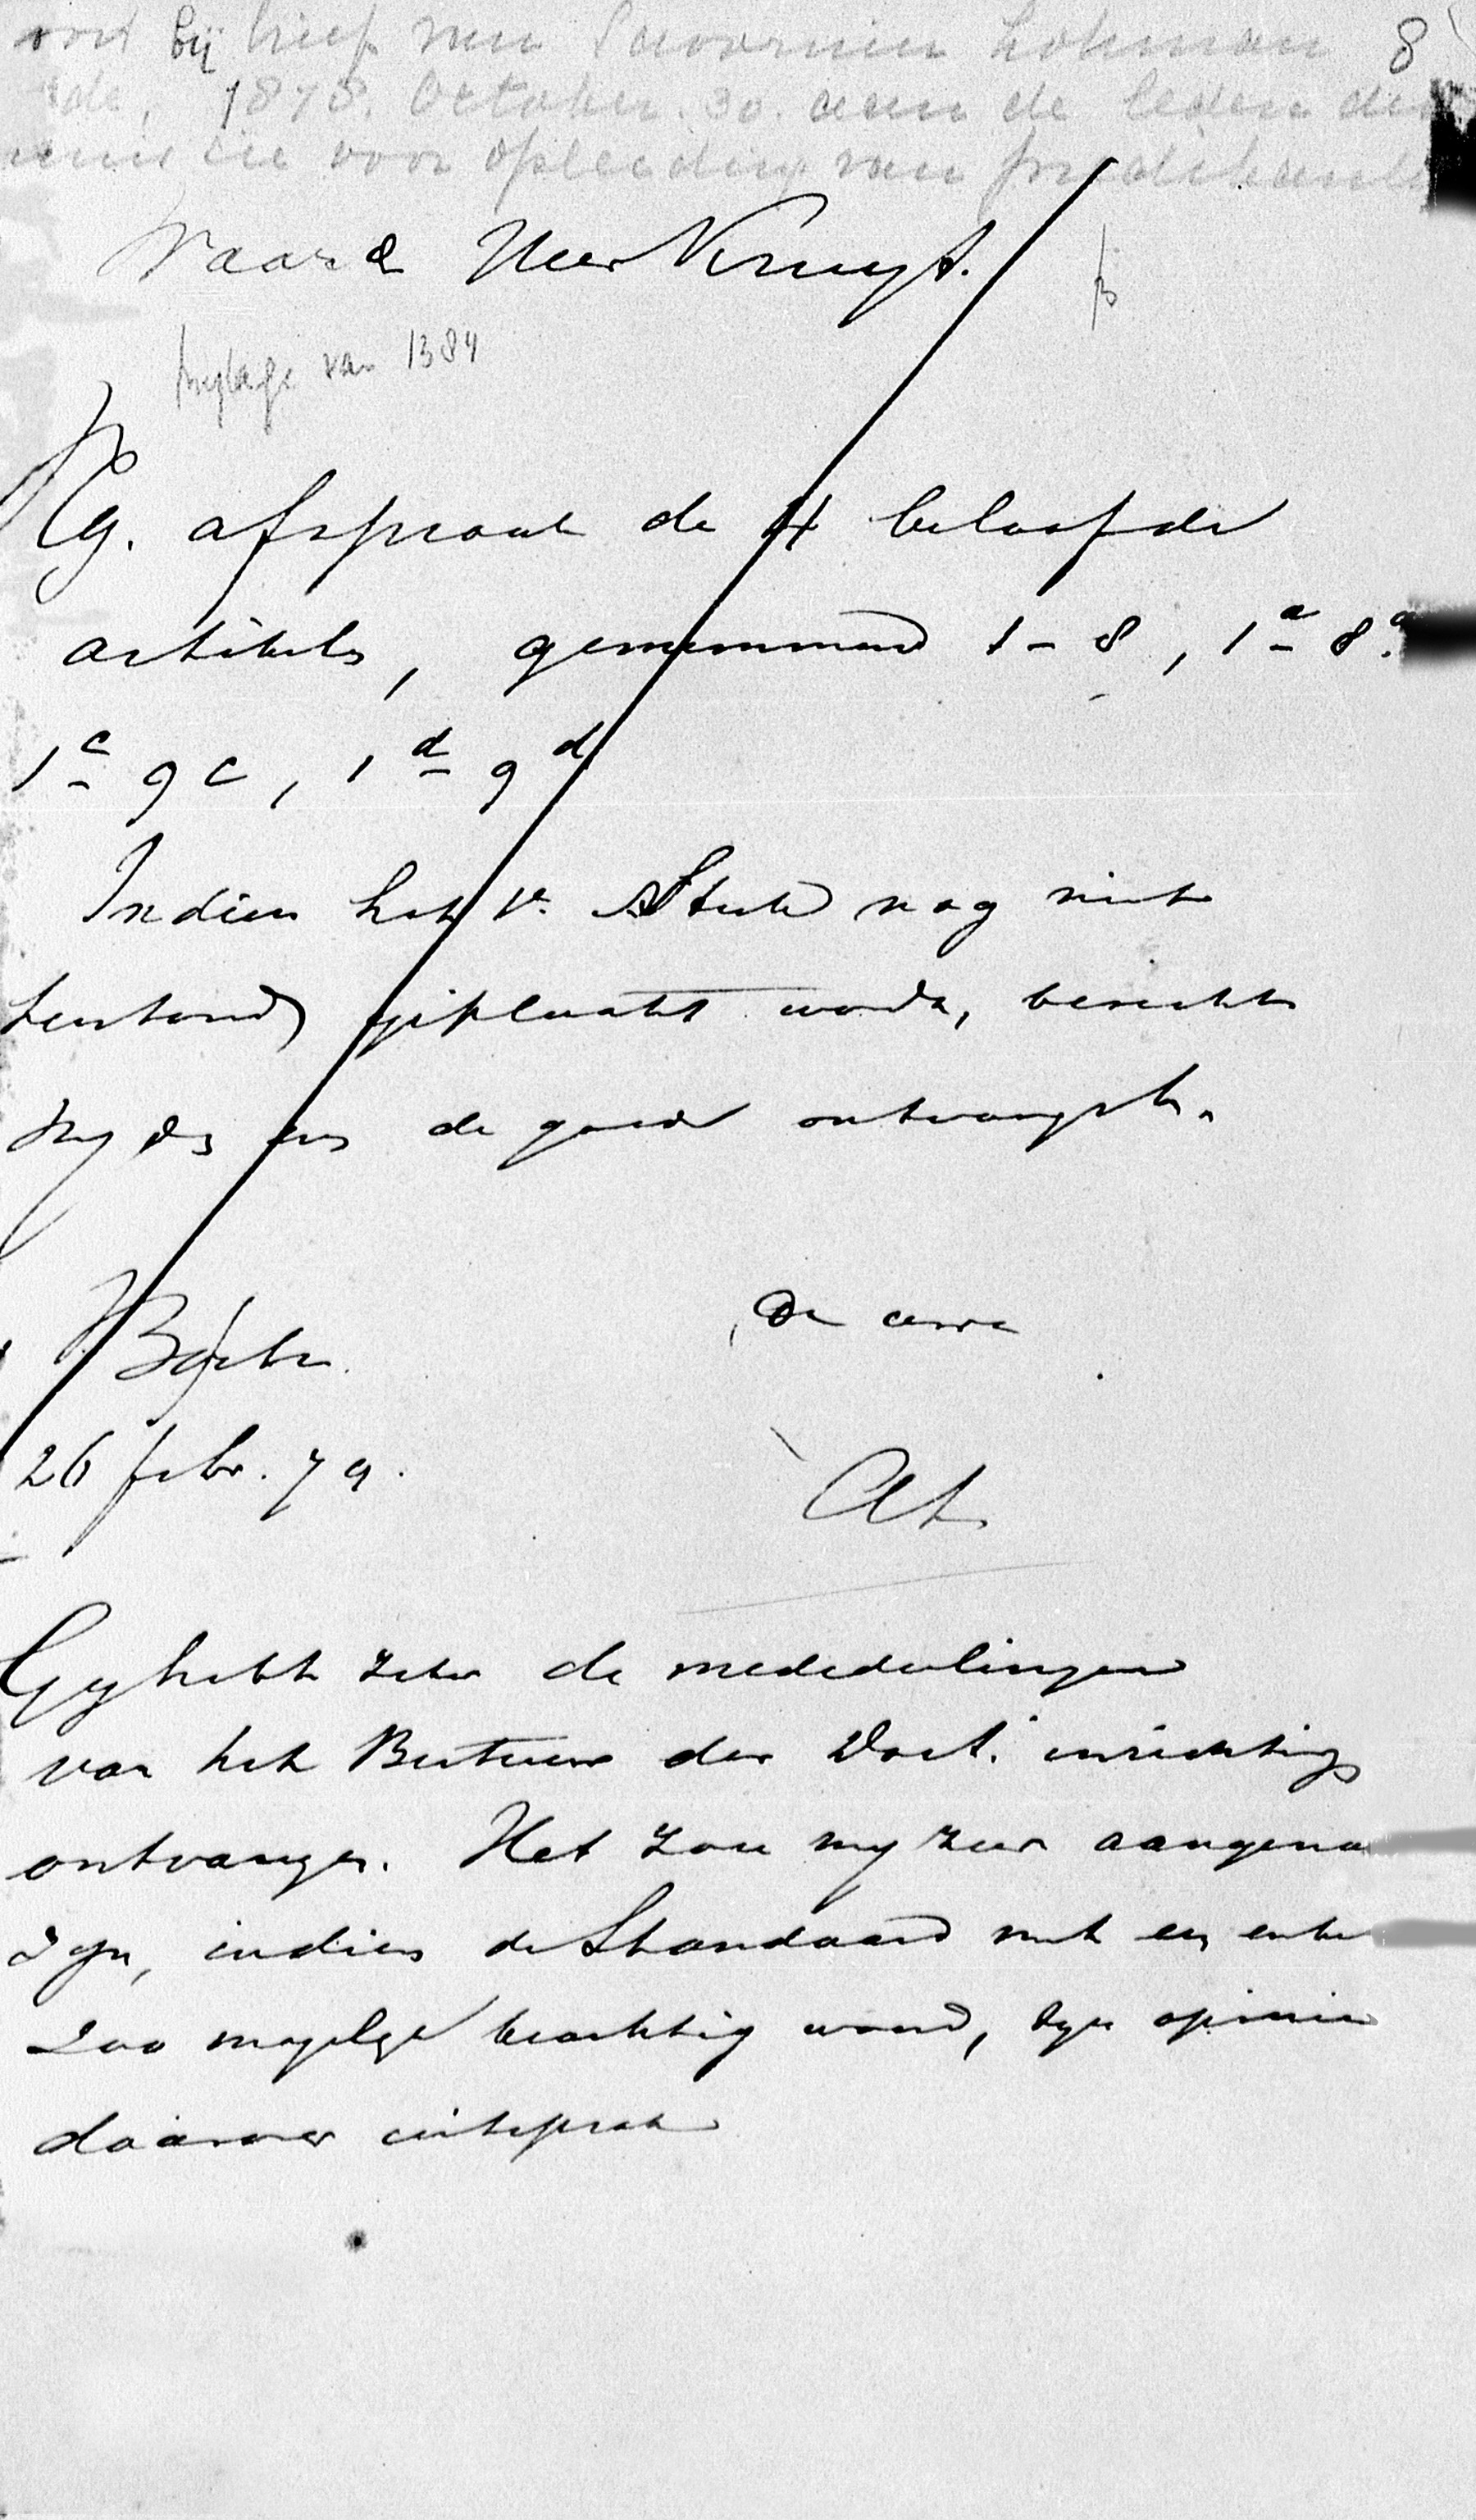 bij brief van Savornin Lohman 8
1878. October. 30. aan de leden der
voor opleiding van predikanten
Waarde Heer Kruyt.
bylage van 1384
Cg. afspraak de 4 beloofde
artikels, genummerd 1-8, 1a-8a.
1c-9c, 1d-9d
Indien het 1e Stuk nog niet
terstond geplaatst wordt, bericht
my dan de goede ontvangst.
De uwe
26 febr. 79.
Gy hebt zeker de mededeelingen
van het Bestuur der Doet. inrichting
ontvangen. Het zou my zeer aangena
zyn, indien de Standaard met en
zoo mogelyk krachtig woord, zyn opinie
daarover uitsprak